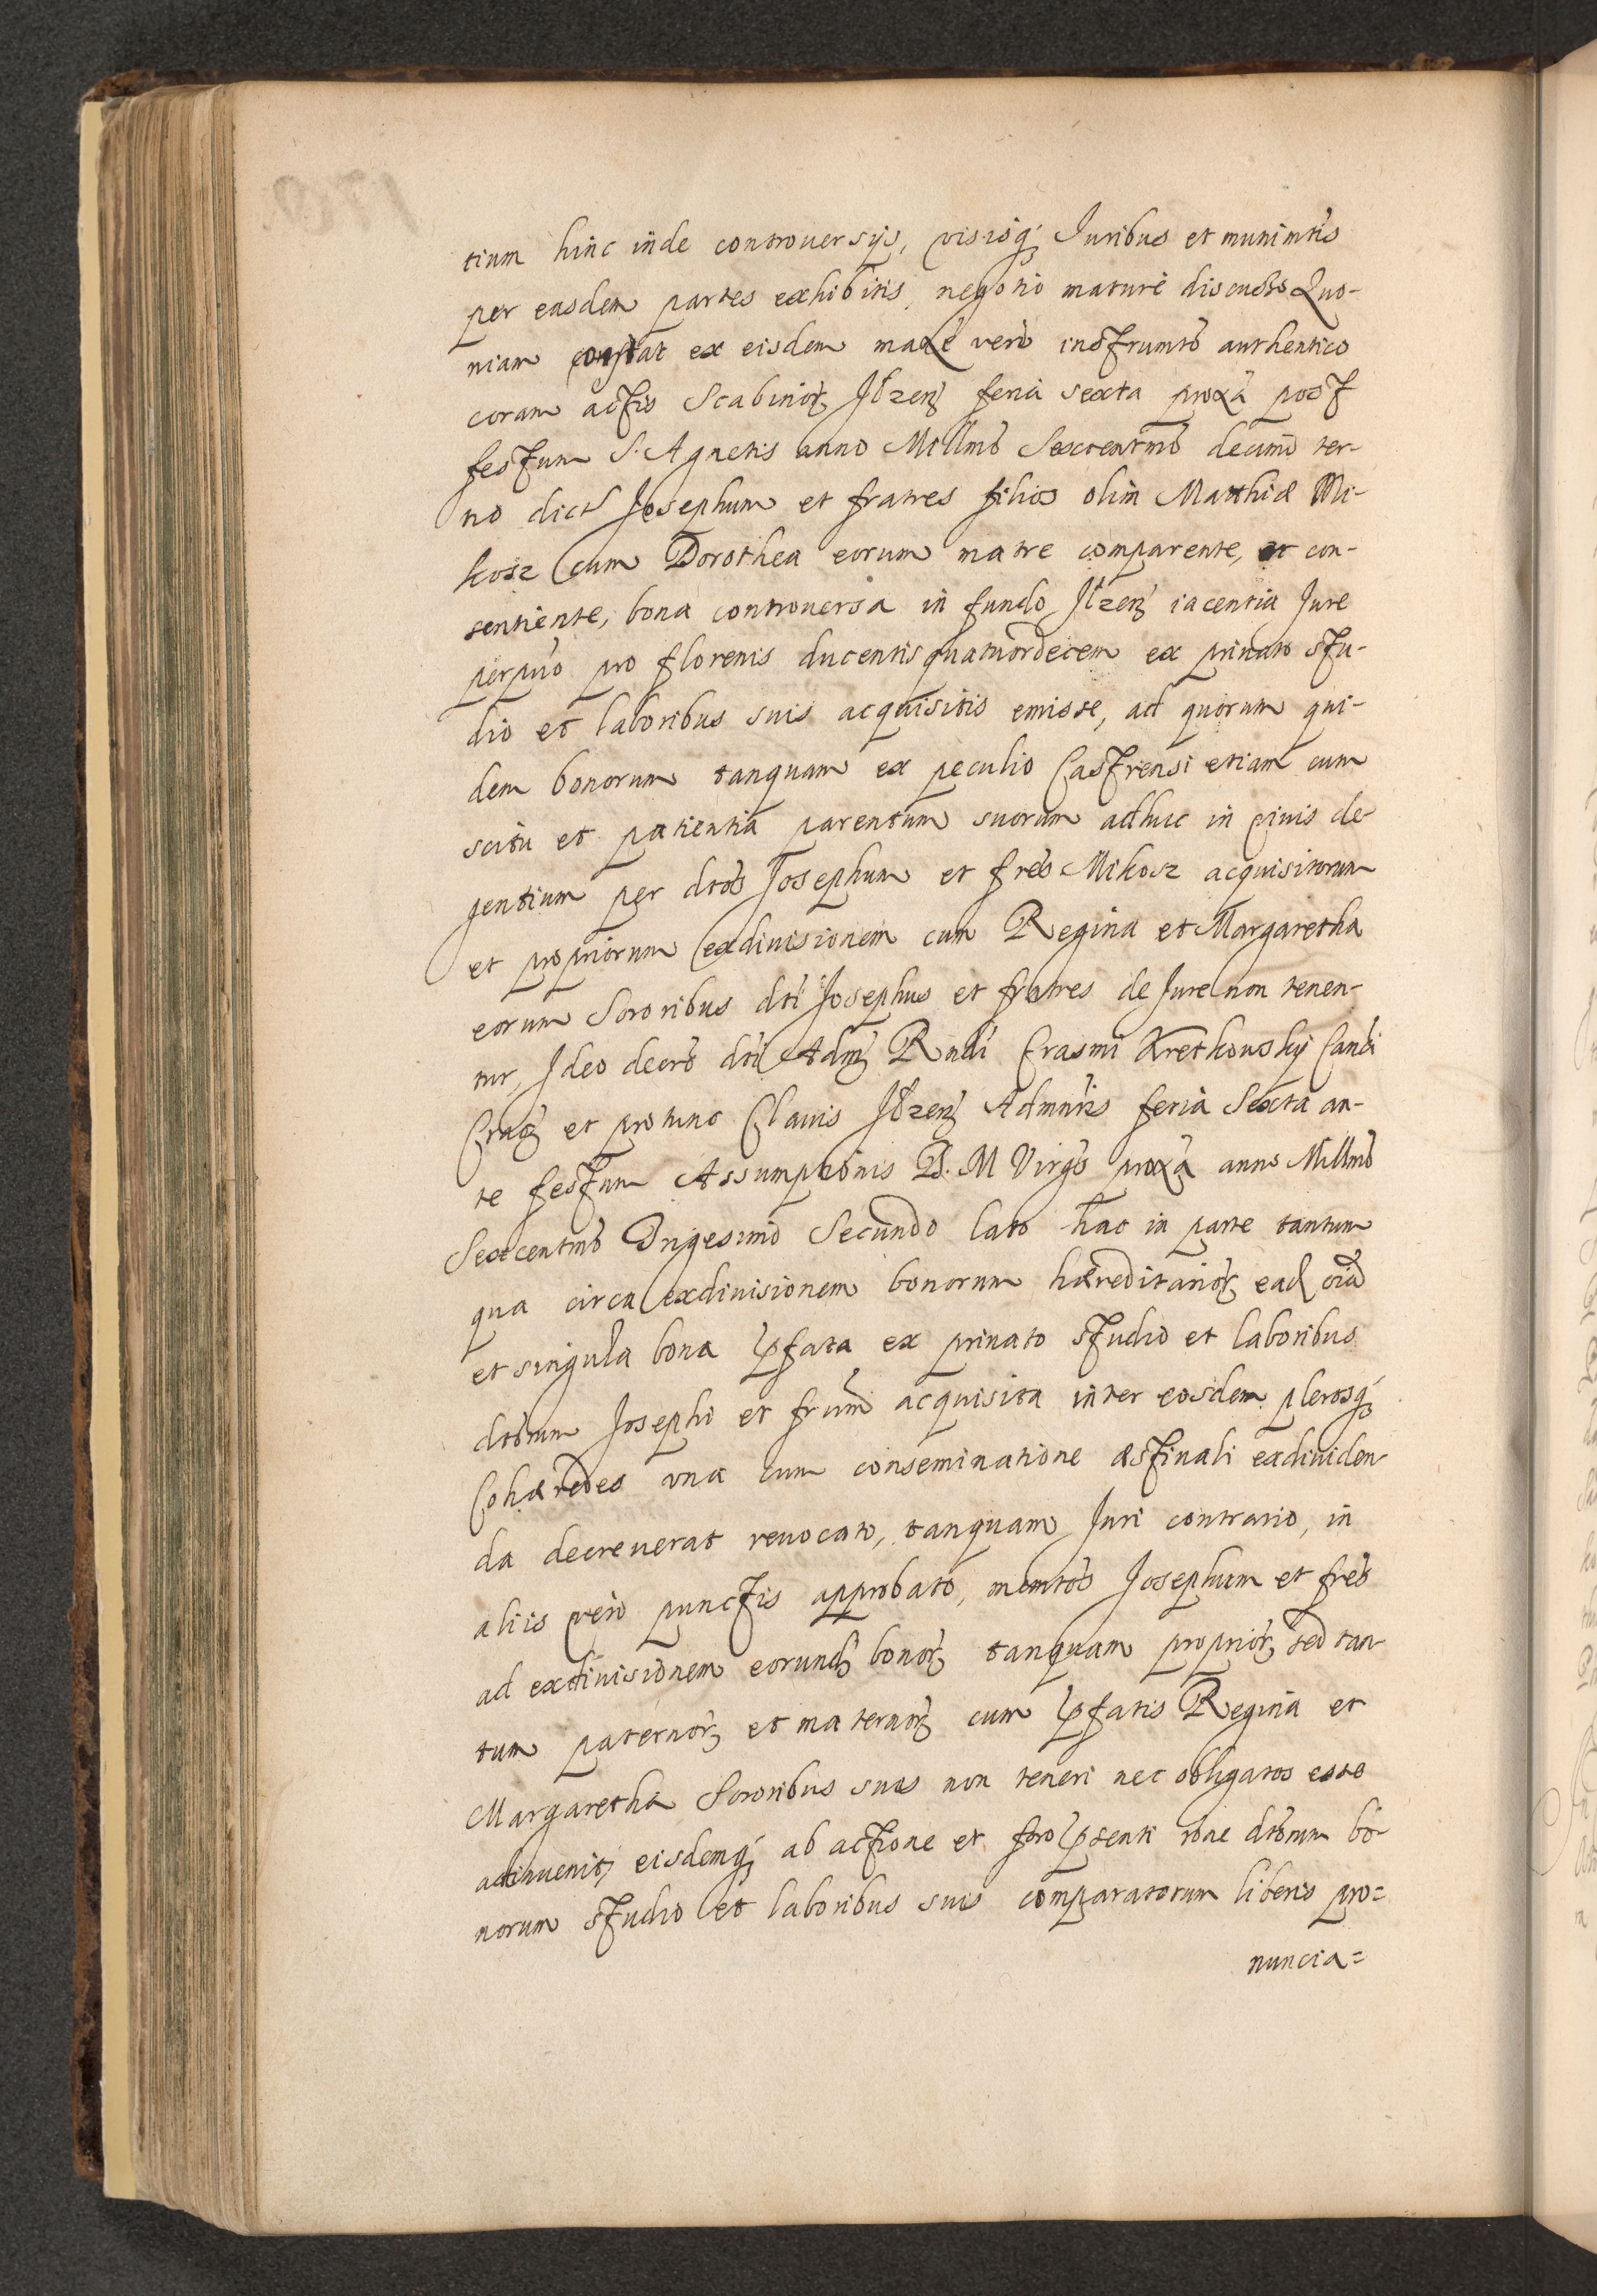 tium hinc inde controuersijs, visisq; Juribus et munimtis
per easdem partes exhibitis, negotio maturè discusso Quo-
niam constat ex eisdem maxè verò instrumto authentico
coram actis Scabinor; Ilzen; feria sexta proxa post
festum S. Agnetis anno Millmo Sexcentmo decimo ter-
no dict Josephum et fratres filios olim Matthiæ Mi-
kosz cum Dorothea eorum matre comparente, et con-
sentiente, bona controuersa in fundo Ilzen; iacentia Jure
perpuo pro florenis ducentis quatuordecem ex priuato stu-
dio et laboribus suis acquisitis emisse, ad quorum qui-
dem bonorum tanquam ex peculio Castrensi etiam cum
scitu et patientia parentum suorum adhuc in viuis de-
gentium per dtos Josephum et fres Mikosz acquisitorum
et propriorum exdiuisionem cum Regina et Margaretha
eorum Sororibus dti Josephus et fratres de Jure non tenen-
tur, Ideo decro dti Adm; Rndi Erasmi Kretkowsky Canci
Crac; et protunc Clauis Ilzen; Admnris feria Sexta an-
te festum Assumptionis B. M Virgs proxa anno Millmo
Sexcentmo Trigesimo Secundo lato hac in parte tantum
qua circa exdiuisionem bonorum hæreditarior; ead oia
et singula bona pfata ex priuato studio et laboribus
dtorum Josephi et frum acquisita inter eosdem plerosq;
Cohæredes vna cum conseminatione æstiuali exdiuiden-
da decreuerat reuocato, tanquam Juri contrario, in
aliis verò punctis approbato, memtos Josephum et fres
ad exdiuisionem eorund; bonor; tanquam proprior; sed tan-
tum paternor; et maternor; cum pfatis Regina et
Margaretha Sororibus suis non teneri nec obligatos esse
adinuenit, eisdemq; ab actione et foro psenti rone dtorum bo-
norum studio et laboribus suis comparatorum liberos pro=
nuncia=